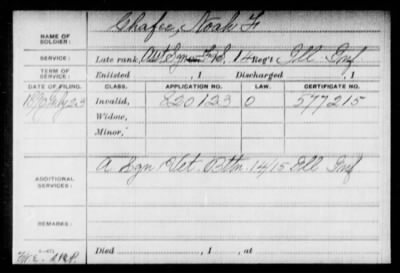 NAME OF SOLDIER: Chafee, Noah F
SERVICE: Late rank, Ast Sgn F & S, 14 Reg't Ill Inf
TERM OF SERVICE: Enlisted , 1 Discharged , 1
DATE OF FILING. CLASS. APPLICATION NO. LAW. CERTIFICATE NO.
1890 July 23 Invalid, 820123 O 577215
Widow,
Minor,
ADDITIONAL SERVICES: A Sgn Vet. Battn 14/15 Ill Inf
REMARKS:
Died , 1 , at